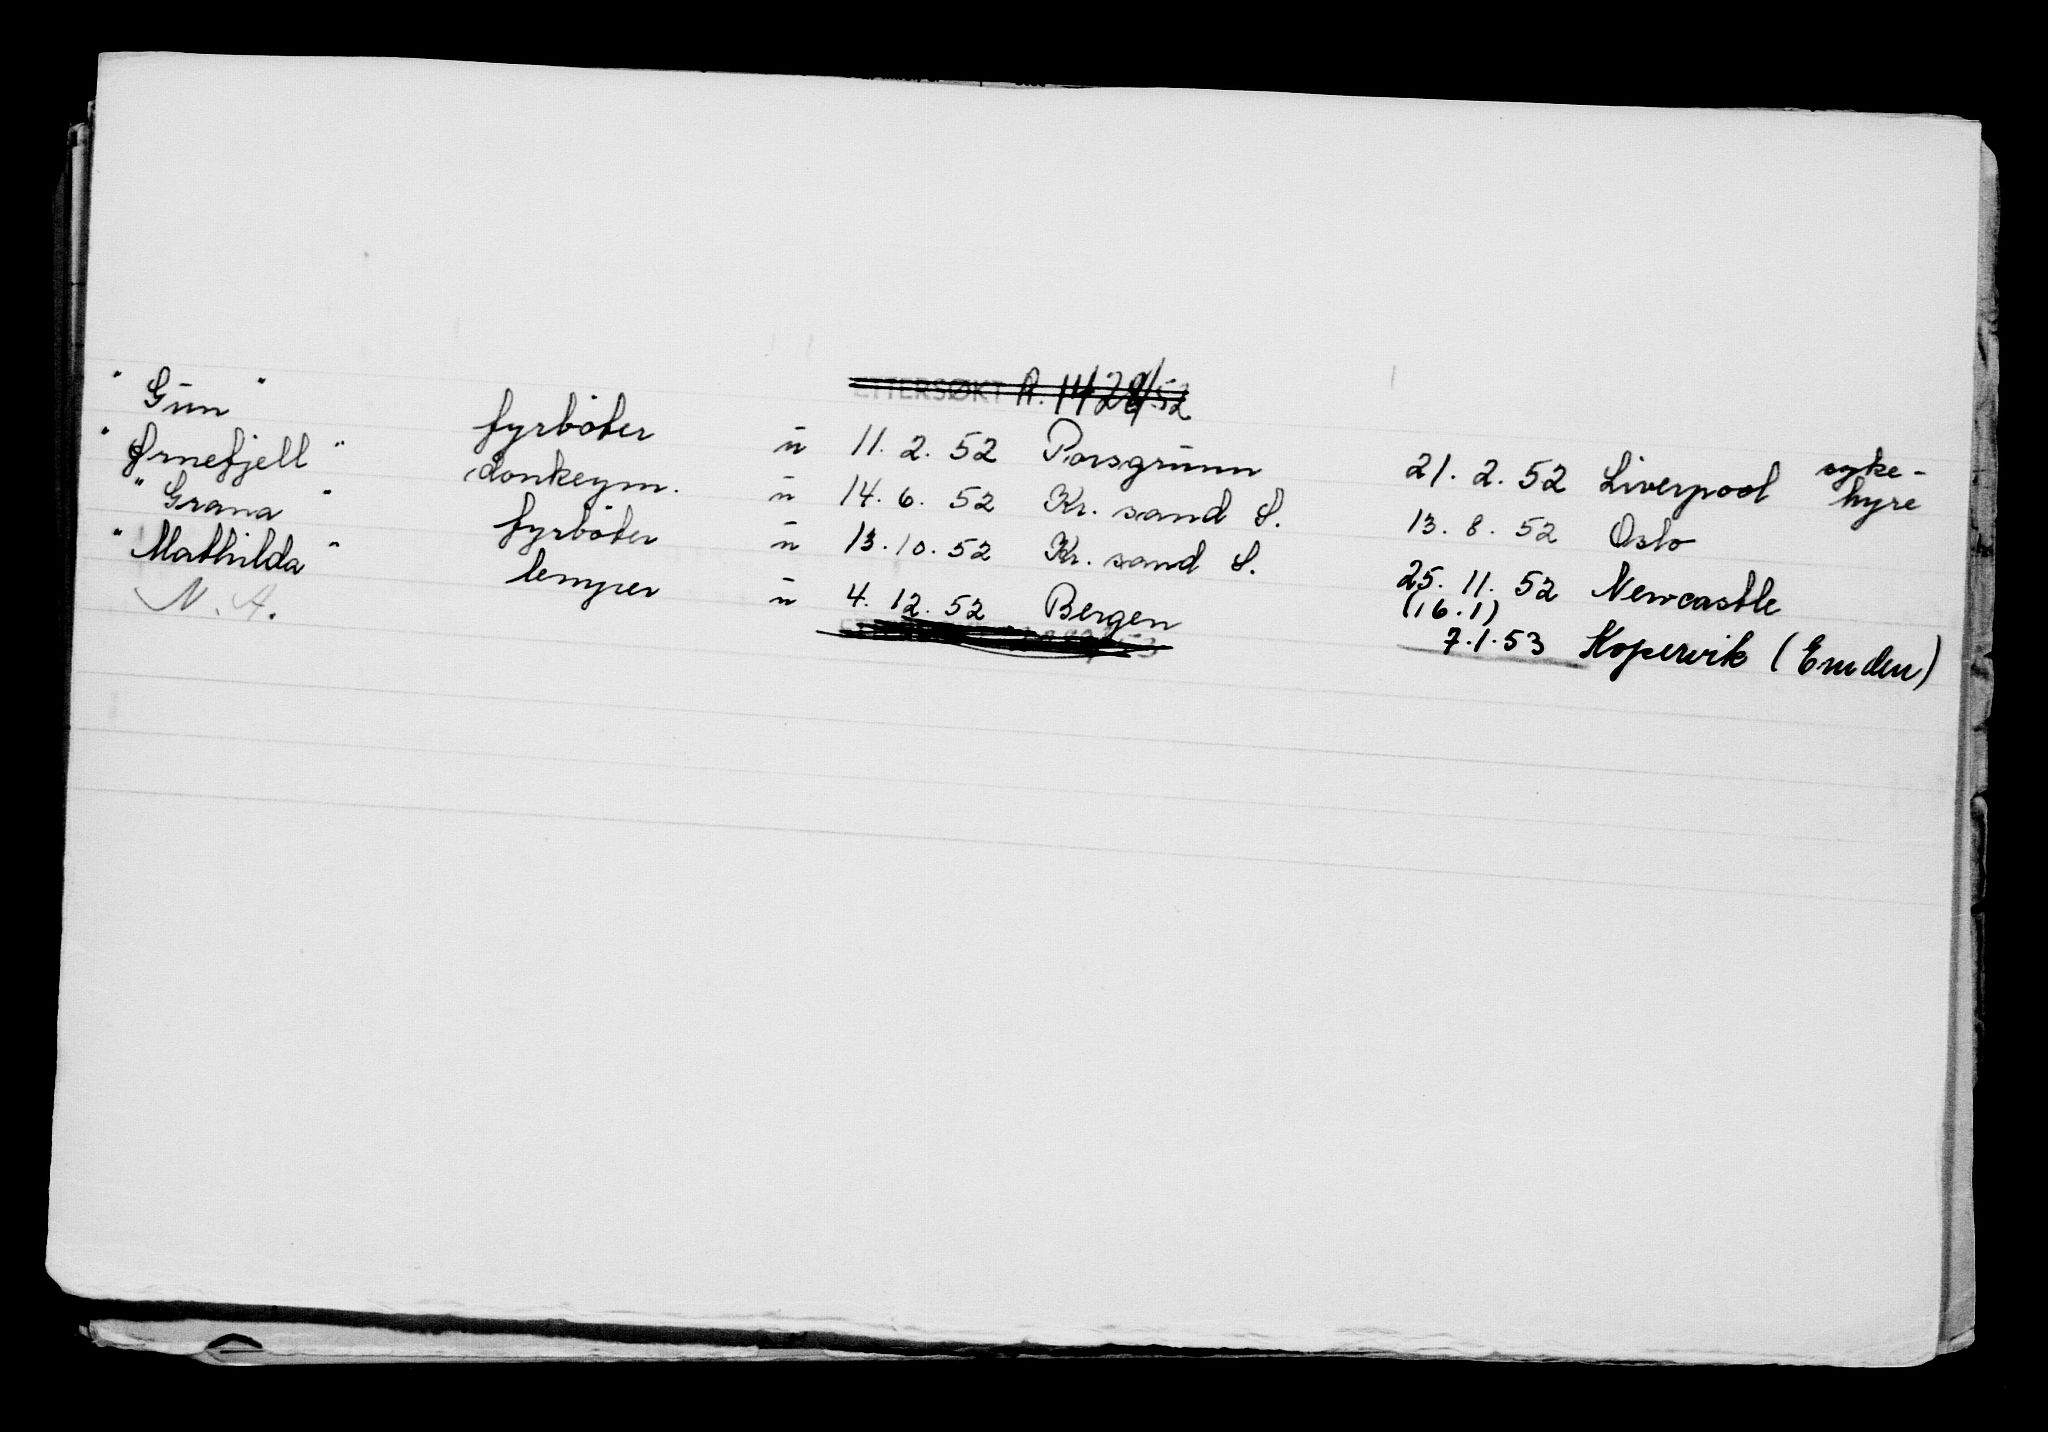 ETTERSØKT A. 1428/52
"Gun" fyrböter ū 11. 2. 52 Porsgrunn 21. 2. 52 Liverpool syke-hyre
"Ørnefjell" donkeym. ū 14. 6. 52 Kr. sand S. 13. 8. 52 Oslo
"Grana" fyrböter ū 13. 10. 52 Kr. sand S. 25. 11. 52 Newcastle
"Mathilda" lemper ū 4. 12. 52 Bergen (16.1) 7.1.53 Kopervik (Emden)
N. A.